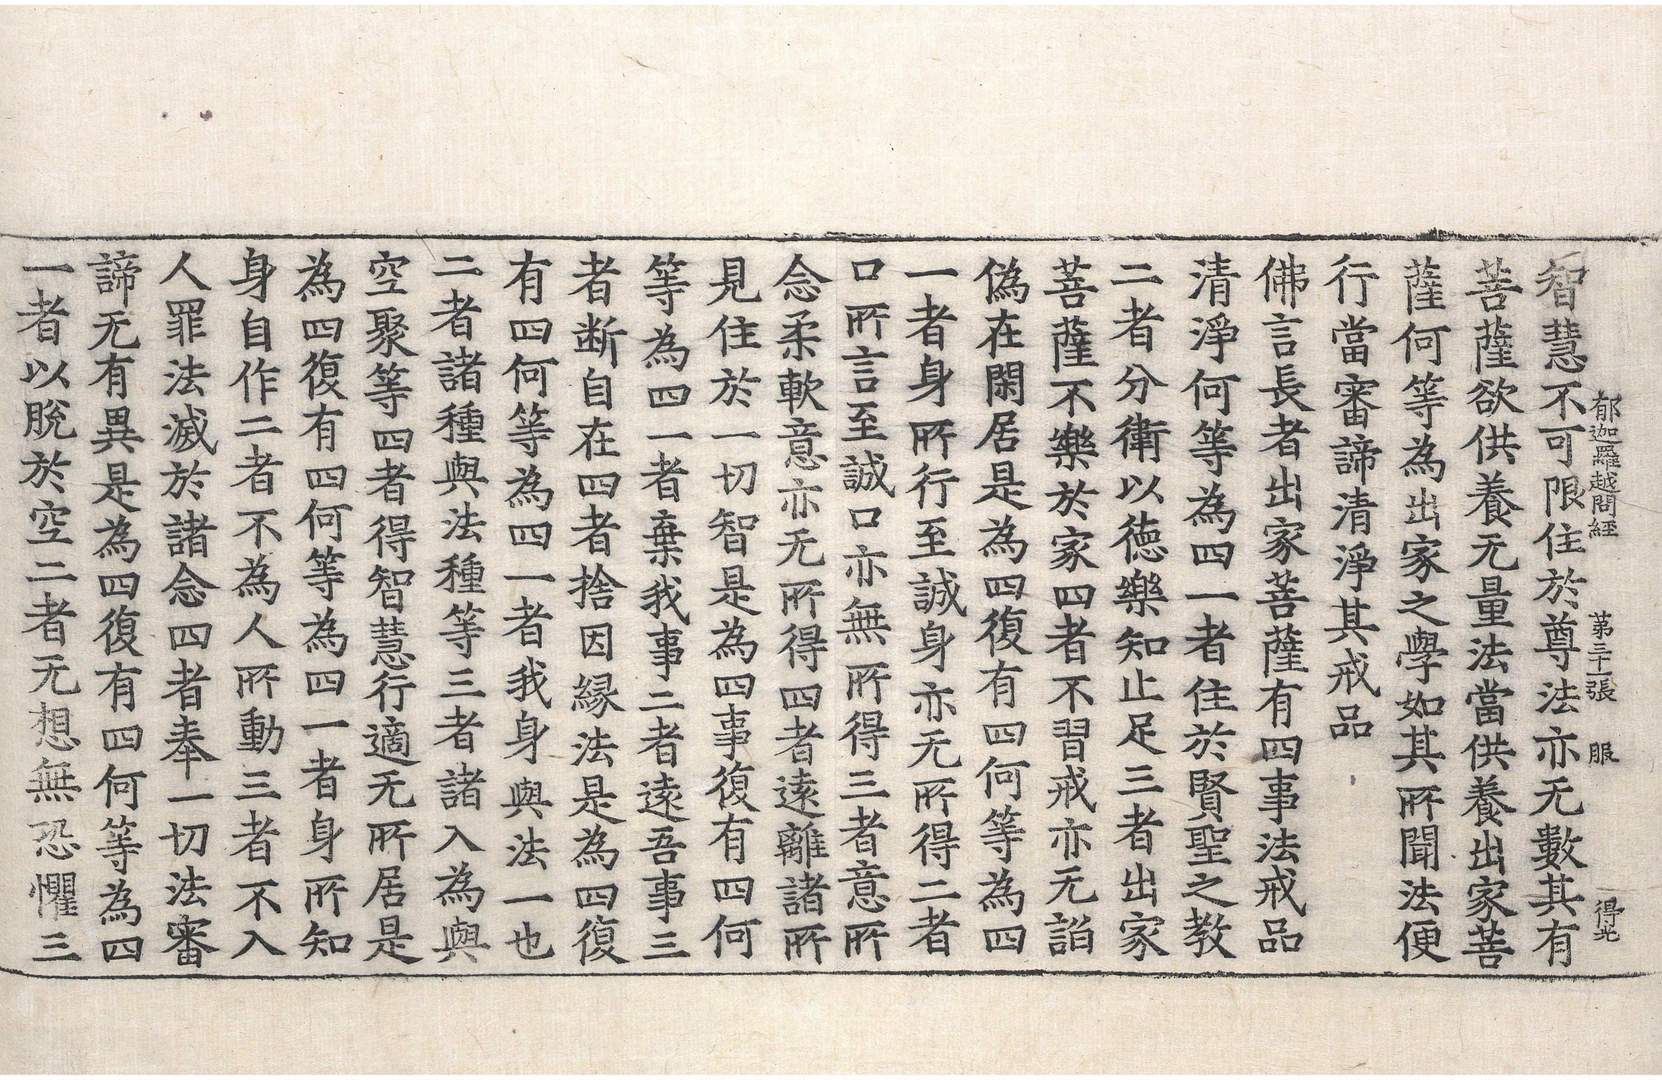 郁迦羅越問經 第三十一張 服 得光
智慧不可限住於尊法亦无數其有
菩薩欲供養无量法當供養出家菩
薩何等為出家之學如其所聞法便
行當審諦清淨其戒品
佛言長者出家菩薩有四事法戒品
清淨何等為四一者住於賢聖之教
二者分衛以德樂知止足三者出家
菩薩不樂於家四者不習戒亦无諂
偽在閑居是為四復有四何等為四
一者身所行至誠身亦无所得二者
口所言至誠口亦無所得三者意所
念柔軟意亦无所得四者遠離諸所
見住於一切智是為四事復有四何
等為四一者棄我事二者遠吾事三
者断自在四者捨因縁法是為四復
有四何等為四一者我身與法一也
二者諸種與法種等三者諸入為與
空聚等四者得智慧行適无所居是
為四復有四何等為四一者身所知
身自作二者不為人所動三者不入
人罪法滅於諸念四者奉一切法審
諦无有異是為四復有四何等為四
一者以脫於空二者无想無恐懼三